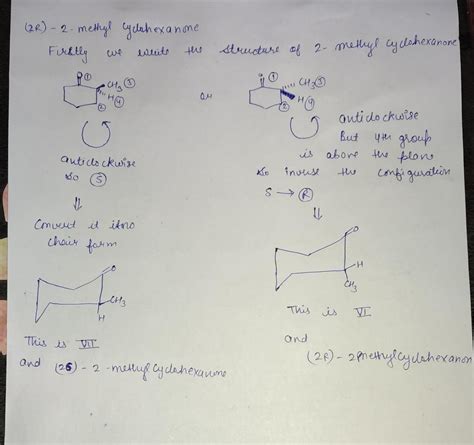 (2R) - 2 - methyl cyclohexanone
Firstly we write the structure of 2 - methyl cyclohexanone
O ① CH3 ③ H ④ ②
or
O ① CH3 ③ H ④ ②
anticlockwise
so Ⓢ
anticlockwise
But 4th group
is above the plane
so inverse the configuration
S → Ⓡ
⇓
⇓
Convert it into
chair form
O
CH3
H
O
H
CH3
This is VII
and (2S) - 2 - methyl cyclohexanone
This is VI
and
(2R) - 2 methyl cyclohexanon